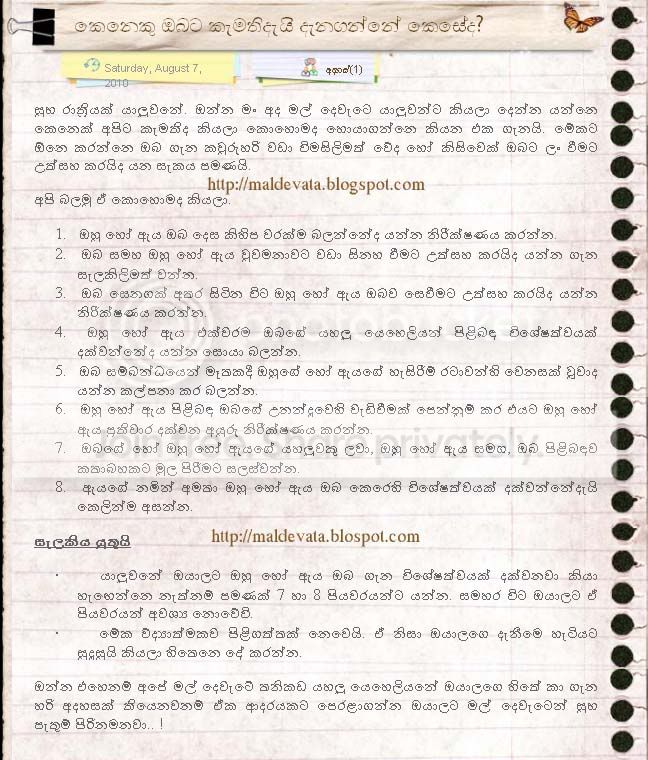 කෙනෙකු ඔබට කැමතිදැයි දැනගන්නේ කෙසේද?
Saturday, August 7,
2010
අදහස්(1)
සුභ රාත්‍රියක් යාලුවනේ. ඔන්න මං අද මල් දෙවැටෙ යාලුවන්ට කියලා දෙන්න යන්නෙ
කෙනෙක් අපිට කැමතිද කියලා කොහොමද හොයාගන්නෙ කියන එක ගැනයි. මේකට
ඕනෙ කරන්නෙ ඔබ ගැන කවුරුහරි වඩා විමසිලිමත් වේද හෝ කිසිවෙක් ඔබට ලං වීමට
උත්සහ කරයිද යන සැකය පමණයි.
http://maldevata.blogspot.com
අපි බලමු ඒ කොහොමද කියලා.
1. ඔහු හෝ ඇය ඔබ දෙස කිහිප වරක්ම බලන්නේද යන්න නිරීක්ෂණය කරන්න.
2. ඔබ සමඟ ඔහු හෝ ඇය වුවමනාවට වඩා සිනහ වීමට උත්සහ කරයිද යන්න ගැන
සැලකිලිමත් වන්න.
3. ඔබ සෙනගක් අතර සිටින විට ඔහු හෝ ඇය ඔබව සෙවීමට උත්සහ කරයිද යන්න
නිරීක්ෂණය කරන්න.
4. ඔහු හෝ ඇය එක්වරම ඔබගේ යහලු යෙහෙලියන් පිළිබඳ විශේෂත්වයක්
දක්වන්නේද යන්න සොයා බලන්න.
5. ඔබ සම්බන්ධයෙන් මෑතකදී ඔහුගේ හෝ ඇයගේ හැසිරීම් රටාවන්හි වෙනසක් වූවාද
යන්න කල්පනා කර බලන්න.
6. ඔහු හෝ ඇය පිළිබඳ ඔබගේ උනන්දුවෙහි වැඩිවීමක් පෙන්නුම් කර එයට ඔහු හෝ
ඇය ප්‍රතිචාර දක්වන අයුරු නිරීක්ෂණය කරන්න.
7. ඔබගේ හෝ ඔහු හෝ ඇයගේ යහලුවකු ලවා, ඔහු හෝ ඇය සමග, ඔබ පිළිබඳව
කතාබහකට මුල පිරීමට සලස්වන්න.
8. ඇයගේ නමින් අමතා ඔහු හෝ ඇය ඔබ කෙරෙහි විශේෂත්වයක් දක්වන්නේදැයි
කෙලින්ම අසන්න.
සැලකිය යුතුයි
http://maldevata.blospot.com
· යාලුවනේ ඔයාලට ඔහු හෝ ඇය ඔබ ගැන විශේෂත්වයක් දක්වනවා කියා
හැඟෙන්නෙ නැත්නම් පමණක් 7 හා 8 පියවරයන්ට යන්න. සමහර විට ඔයාලට ඒ
පියවරයන් අවශ්‍ය නොවේවි.
· මේක විද්‍යාත්මකව පිළිගත්තක් නෙවෙයි. ඒ නිසා ඔයාලගෙ දැනීමෙ හැටියට
සුදුසුයි කියලා හිතෙන දේ කරන්න.
ඔන්න එහෙනම් අපේ මල් දෙවැටේ තනිකඩ යහලු යෙහෙලියනේ ඔයාලගෙ හිතේ කා ගැන
හරි අදහසක් තියෙනවනම් ඒක ආදරයකට පෙරළාගන්න ඔයාලට මල් දෙවැටෙන් සුභ
පැතුම් පිරිනමනවා.. !